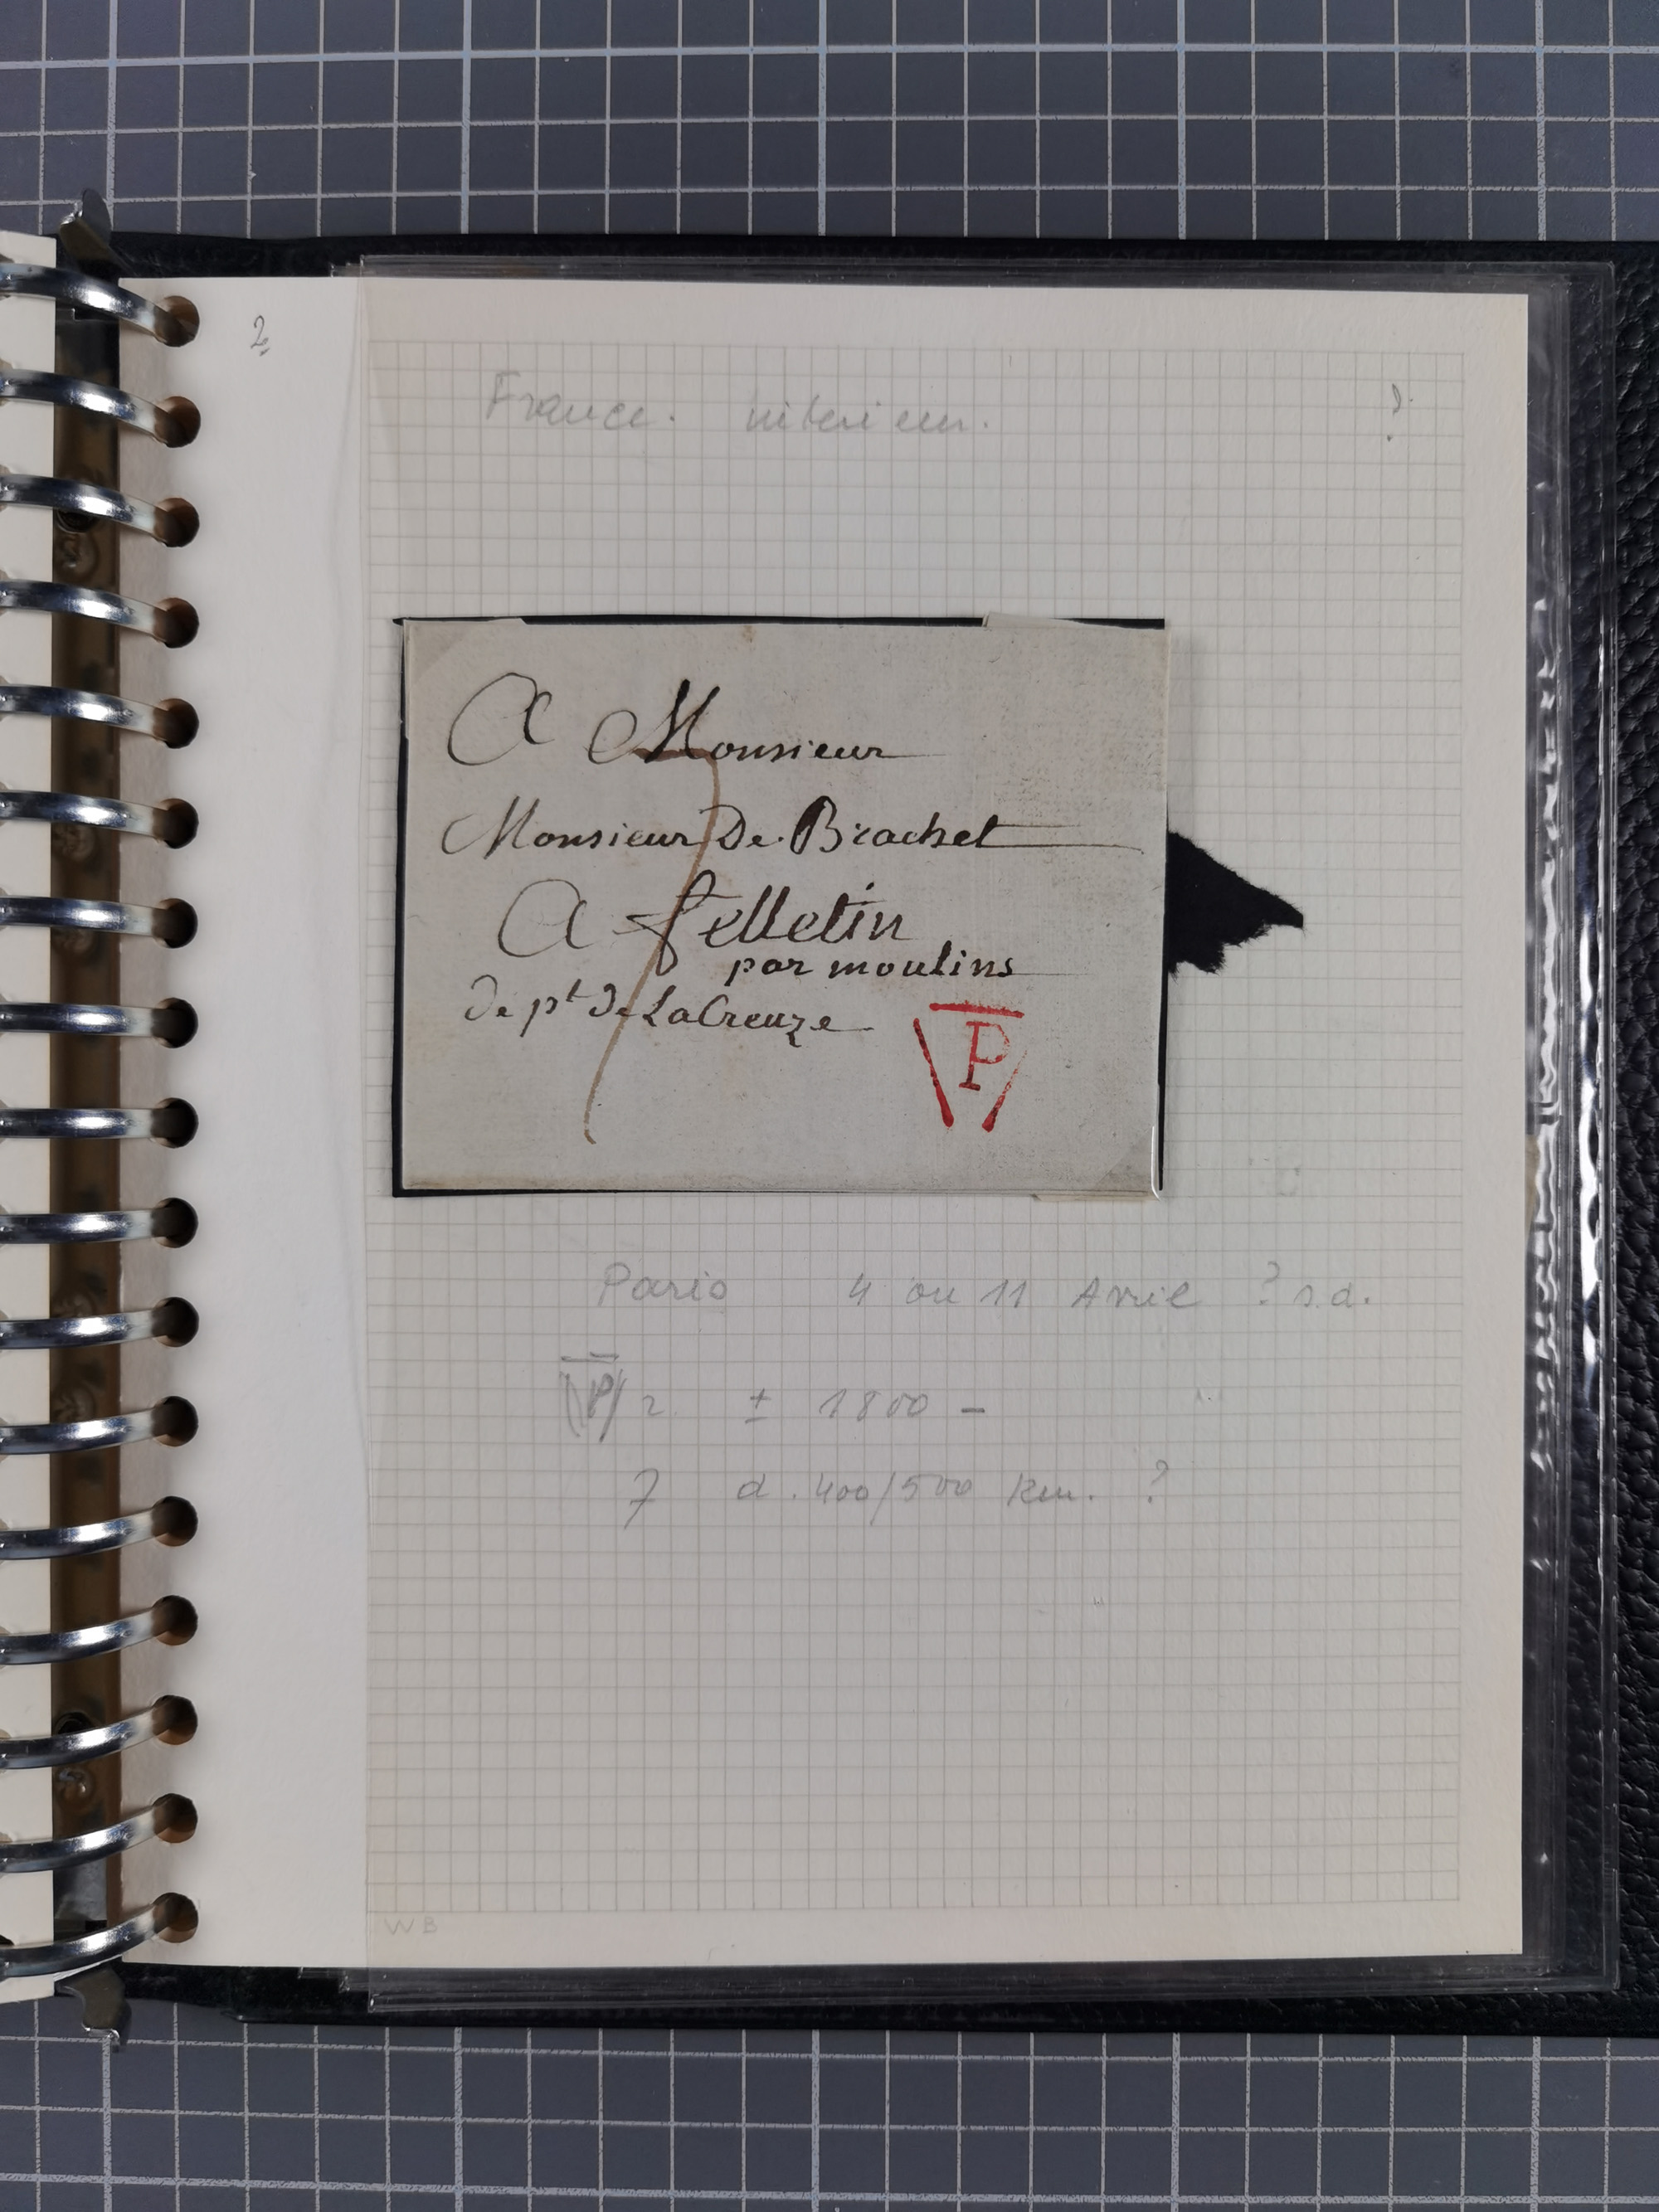 2
France. intérieur.
?
A Monsieur
Monsieur De Brachet
A felletin
par moulins
De pt De La Creuze
7
P
Paris 4 ou 11 Avril ? s.d.
P r. ± 1800 -
7 d. 400/500 km. ?
WB